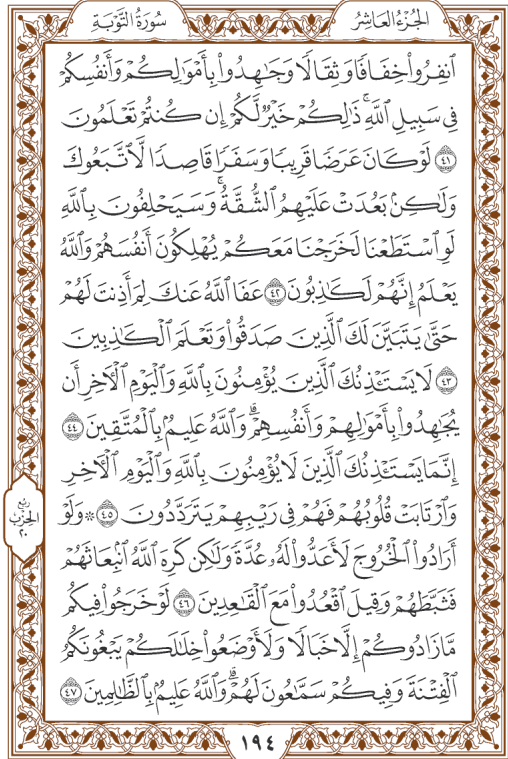 الجُزْءُ العَاشِرُ
سُورَةُ التَّوْبَةِ
ٱنفِرُوا۟ خِفَافًا وَثِقَالًا وَجَٰهِدُوا۟ بِأَمْوَٰلِكُمْ وَأَنفُسِكُمْ
فِى سَبِيلِ ٱللَّهِ ۚ ذَٰلِكُمْ خَيْرٌ لَّكُمْ إِن كُنتُمْ تَعْلَمُونَ
٤١ لَوْ كَانَ عَرَضًا قَرِيبًا وَسَفَرًا قَاصِدًا لَّٱتَّبَعُوكَ
وَلَٰكِنۢ بَعُدَتْ عَلَيْهِمُ ٱلشُّقَّةُ ۚ وَسَيَحْلِفُونَ بِٱللَّهِ
لَوِ ٱسْتَطَعْنَا لَخَرَجْنَا مَعَكُمْ يُهْلِكُونَ أَنفُسَهُمْ وَٱللَّهُ
يَعْلَمُ إِنَّهُمْ لَكَٰذِبُونَ ٤٢ عَفَا ٱللَّهُ عَنكَ لِمَ أَذِنتَ لَهُمْ
حَتَّىٰ يَتَبَيَّنَ لَكَ ٱلَّذِينَ صَدَقُوا۟ وَتَعْلَمَ ٱلْكَٰذِبِينَ
٤٣ لَا يَسْتَـْٔذِنُكَ ٱلَّذِينَ يُؤْمِنُونَ بِٱللَّهِ وَٱلْيَوْمِ ٱلْـَٔاخِرِ أَن
يُجَٰهِدُوا۟ بِأَمْوَٰلِهِمْ وَأَنفُسِهِمْ ۗ وَٱللَّهُ عَلِيمٌۢ بِٱلْمُتَّقِينَ ٤٤
إِنَّمَا يَسْتَـْٔذِنُكَ ٱلَّذِينَ لَا يُؤْمِنُونَ بِٱللَّهِ وَٱلْيَوْمِ ٱلْـَٔاخِرِ
وَٱرْتَابَتْ قُلُوبُهُمْ فَهُمْ فِى رَيْبِهِمْ يَتَرَدَّدُونَ ٤٥ ۞ وَلَوْ
أَرَادُوا۟ ٱلْخُرُوجَ لَأَعَدُّوا۟ لَهُۥ عُدَّةً وَلَٰكِن كَرِهَ ٱللَّهُ ٱنۢبِعَاثَهُمْ
فَثَبَّطَهُمْ وَقِيلَ ٱقْعُدُوا۟ مَعَ ٱلْقَٰعِدِينَ ٤٦ لَوْ خَرَجُوا۟ فِيكُم
مَّا زَادُوكُمْ إِلَّا خَبَالًا وَلَأَوْضَعُوا۟ خِلَٰلَكُمْ يَبْغُونَكُمُ
ٱلْفِتْنَةَ وَفِيكُمْ سَمَّٰعُونَ لَهُمْ ۗ وَٱللَّهُ عَلِيمٌۢ بِٱلظَّٰلِمِينَ ٤٧
ربع
الحزب
٢٠
١٩٤